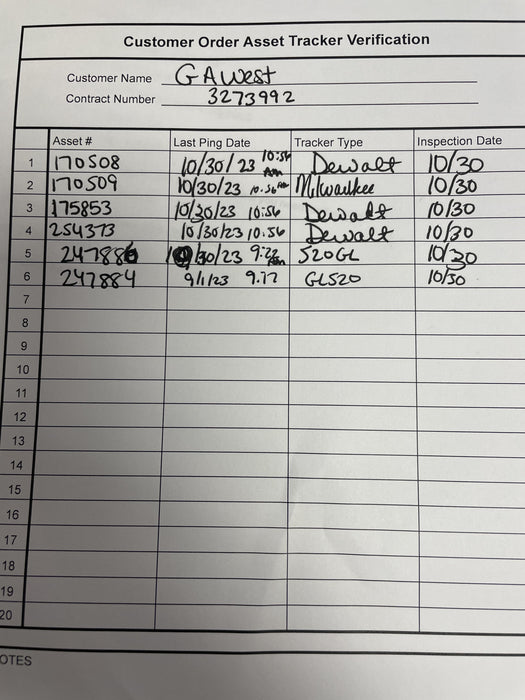 Customer Order Asset Tracker Verification
Customer Name GAWest
Contract Number 3273992
Asset # Last Ping Date Tracker Type Inspection Date
1 170508 10/30/23 10:56 Am Dewalt 10/30
2 170509 10/30/23 10:56 Am Milwaukee 10/30
3 175853 10/30/23 10:56 Dewalt 10/30
4 254373 10/30/23 10:56 Dewalt 10/30
5 247886 10/30/23 520GL 10/30
6 247884 9/1/23 GL520 10/30
7
8
9
10
11
12
13
14
15
16
17
18
19
20
OTES